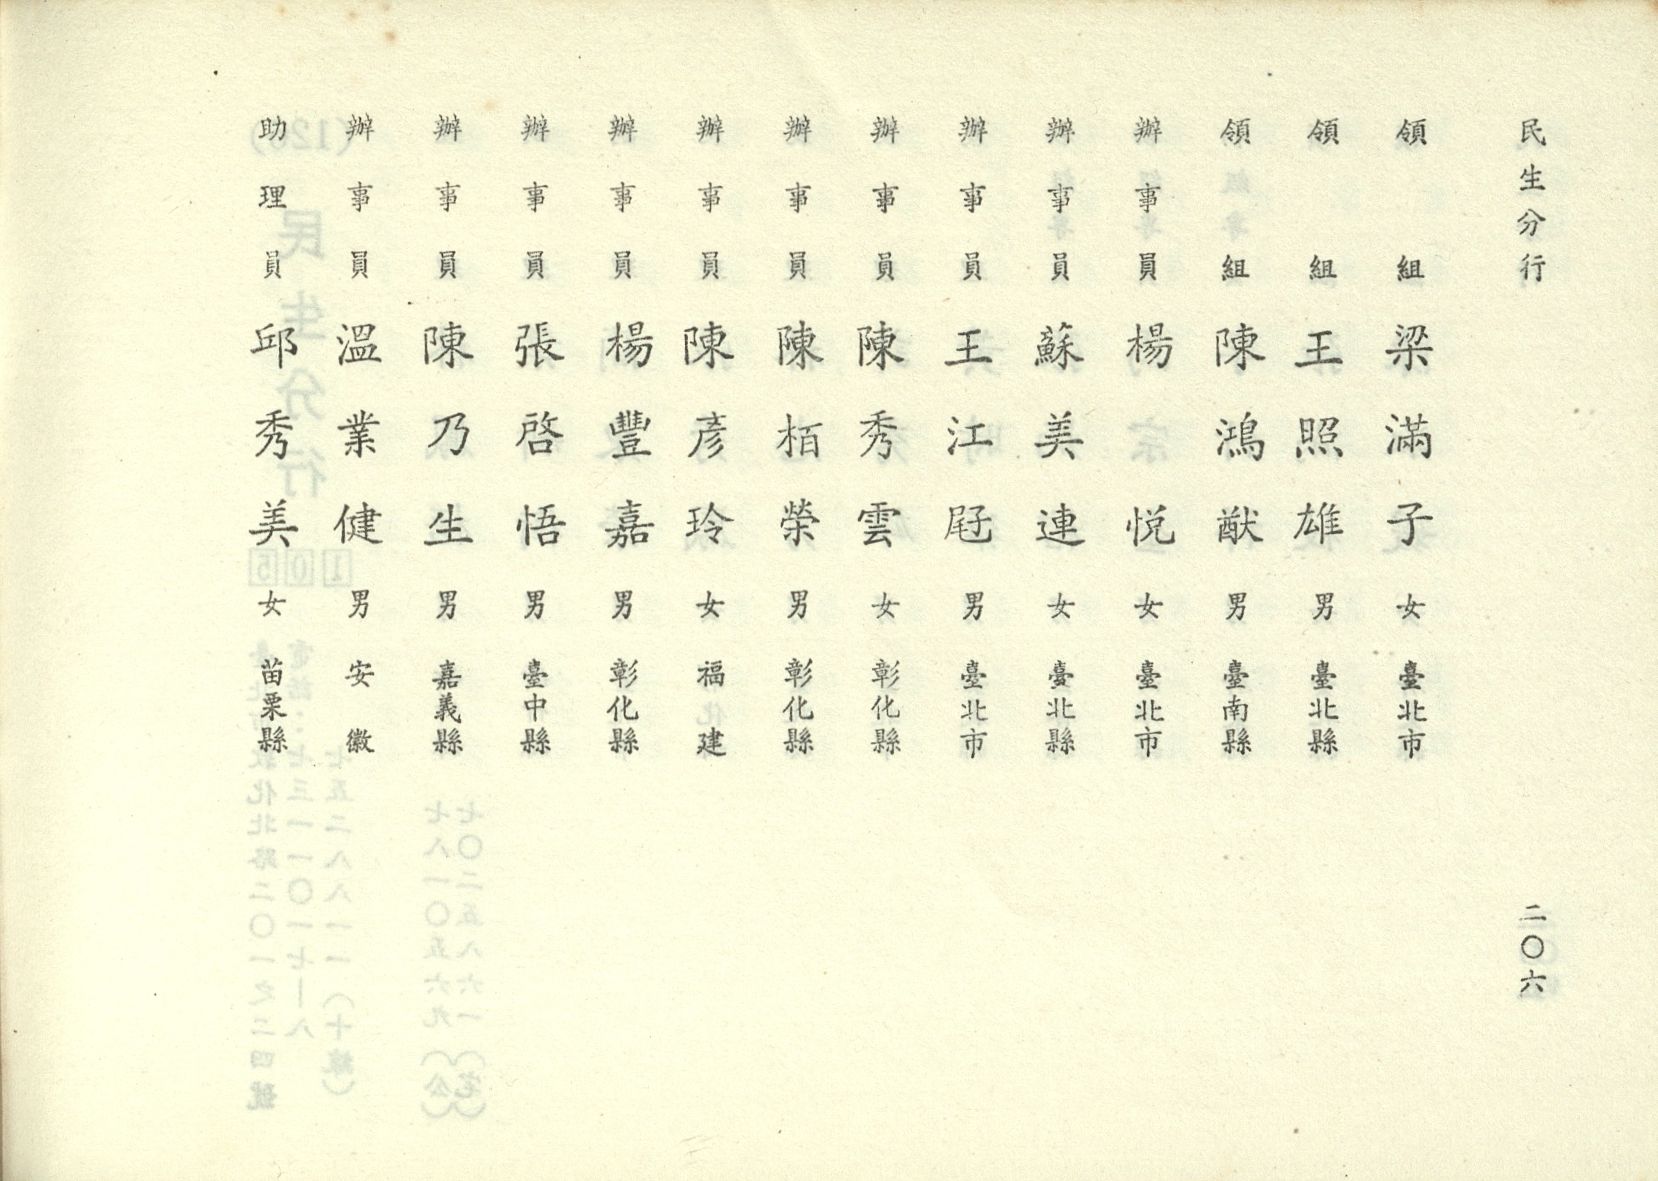 民生分行 二〇六
領組 梁滿子 女 臺北市
領組 王照雄 男 臺北縣
領組 陳鴻猷 男 臺南縣
辦事員 楊悅 女 臺北市
辦事員 蘇美連 女 臺北縣
辦事員 王江 男 臺北市
辦事員 陳秀雲 女 彰化縣
辦事員 陳栢榮 男 彰化縣
辦事員 陳彥玲 女 福建
辦事員 楊豐嘉 男 彰化縣
辦事員 張啓悟 男 臺中縣
辦事員 陳乃生 男 嘉義縣
辦事員 溫業健 男 安徽
助理員 邱秀美 女 苗栗縣